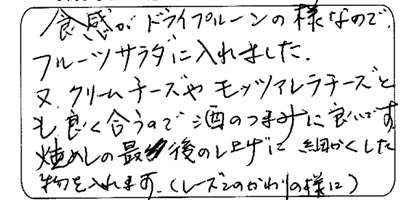 食感がドライプルーンの様なので、
フルーツサラダに入れました。
又、クリームチーズやモッツァレラチーズと
も良く合うので酒のつまみに良いです
焼めしの最後の仕上げに細かくした
物を入れます。(レーズンのかわりの様に)